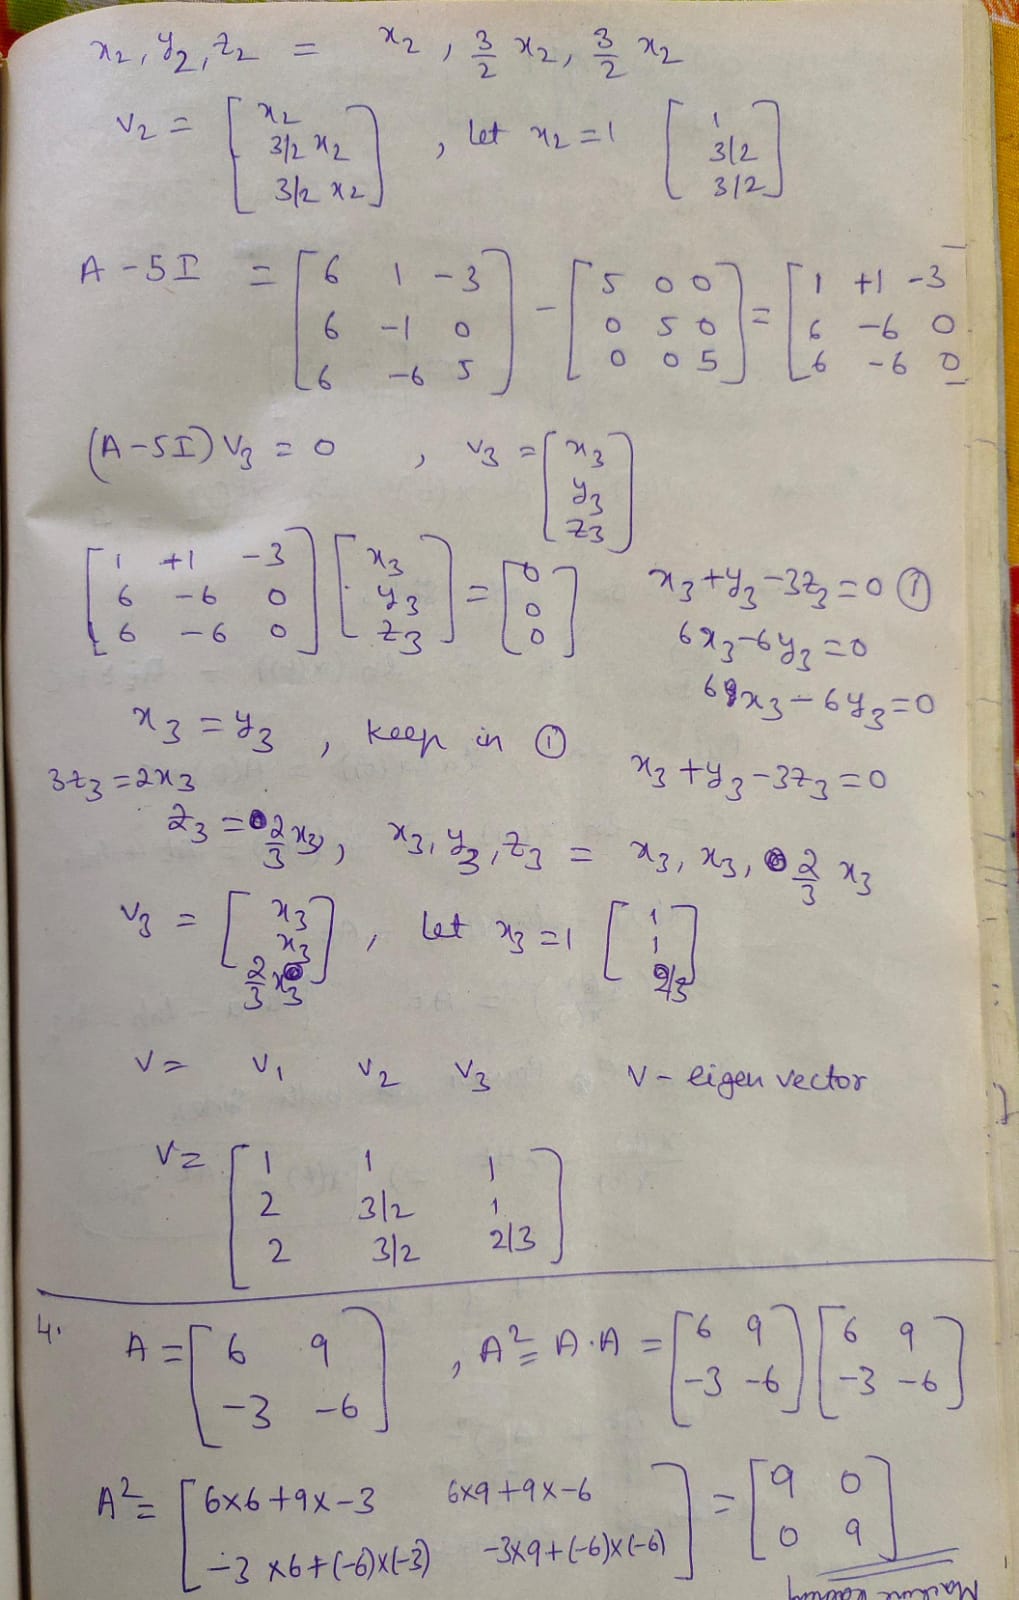 x₂, y₂, z₂ = x₂, 3/2 x₂, 3/2 x₂
v₂ = [x₂; 3/2 x₂; 3/2 x₂], let x₂ = 1 [1; 3/2; 3/2]
A - 5I = [6 1 -3; 6 -1 0; 6 -6 5] - [5 0 0; 0 5 0; 0 0 5] = [1 +1 -3; 6 -6 0; 6 -6 0]
(A - 5I) v₃ = 0, v₃ = [x₃; y₃; z₃]
[1 +1 -3; 6 -6 0; 6 -6 0] [x₃; y₃; z₃] = [0; 0; 0]
x₃ + y₃ - 3z₃ = 0 ①
6x₃ - 6y₃ = 0
6x₃ - 6y₃ = 0
x₃ = y₃, keep in ①
x₃ + y₃ - 3z₃ = 0
3z₃ = 2x₃
z₃ = 2/3 x₃, x₃, y₃, z₃ = x₃, x₃, 2/3 x₃
v₃ = [x₃; x₃; 2/3 x₃], let x₃ = 1 [1; 1; 2/3]
V = v₁ v₂ v₃ V - eigen vector
V = [1 1 1; 2 3/2 1; 2 3/2 2/3]
4. A = [6 9; -3 -6], A² = A·A = [6 9; -3 -6] [6 9; -3 -6]
A² = [6×6+9×-3 6×9+9×-6; -3×6+(-6)×(-3) -3×9+(-6)×(-6)] = [9 0; 0 9]